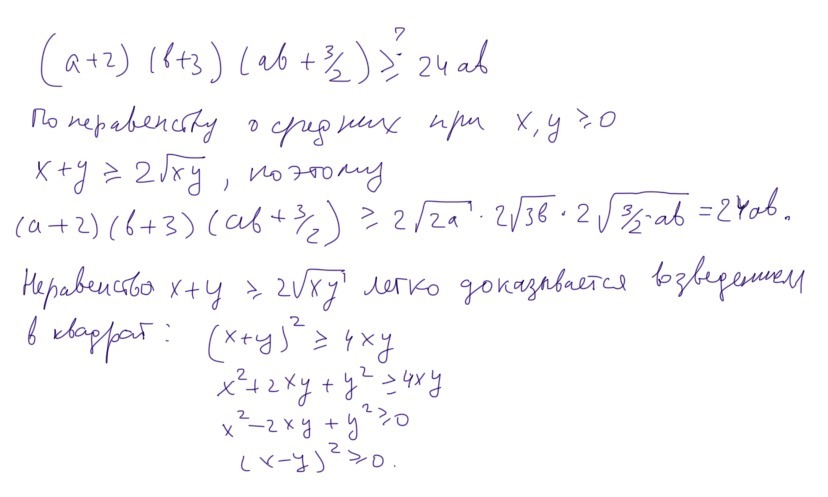 (a+2) (b+3) (ab + 3/2) ≥ 24ab ?
По неравенству о средних при x, y ≥ 0
x+y ≥ 2√xy, поэтому
(a+2) (b+3) (ab + 3/2) ≥ 2√2a · 2√3b · 2√3/2·ab = 24ab.
Неравенство x+y ≥ 2√xy легко доказывается возведением
в квадрат: (x+y)² ≥ 4xy
x²+2xy + y² ≥ 4xy
x²-2xy + y² ≥ 0
(x-y)² ≥ 0.